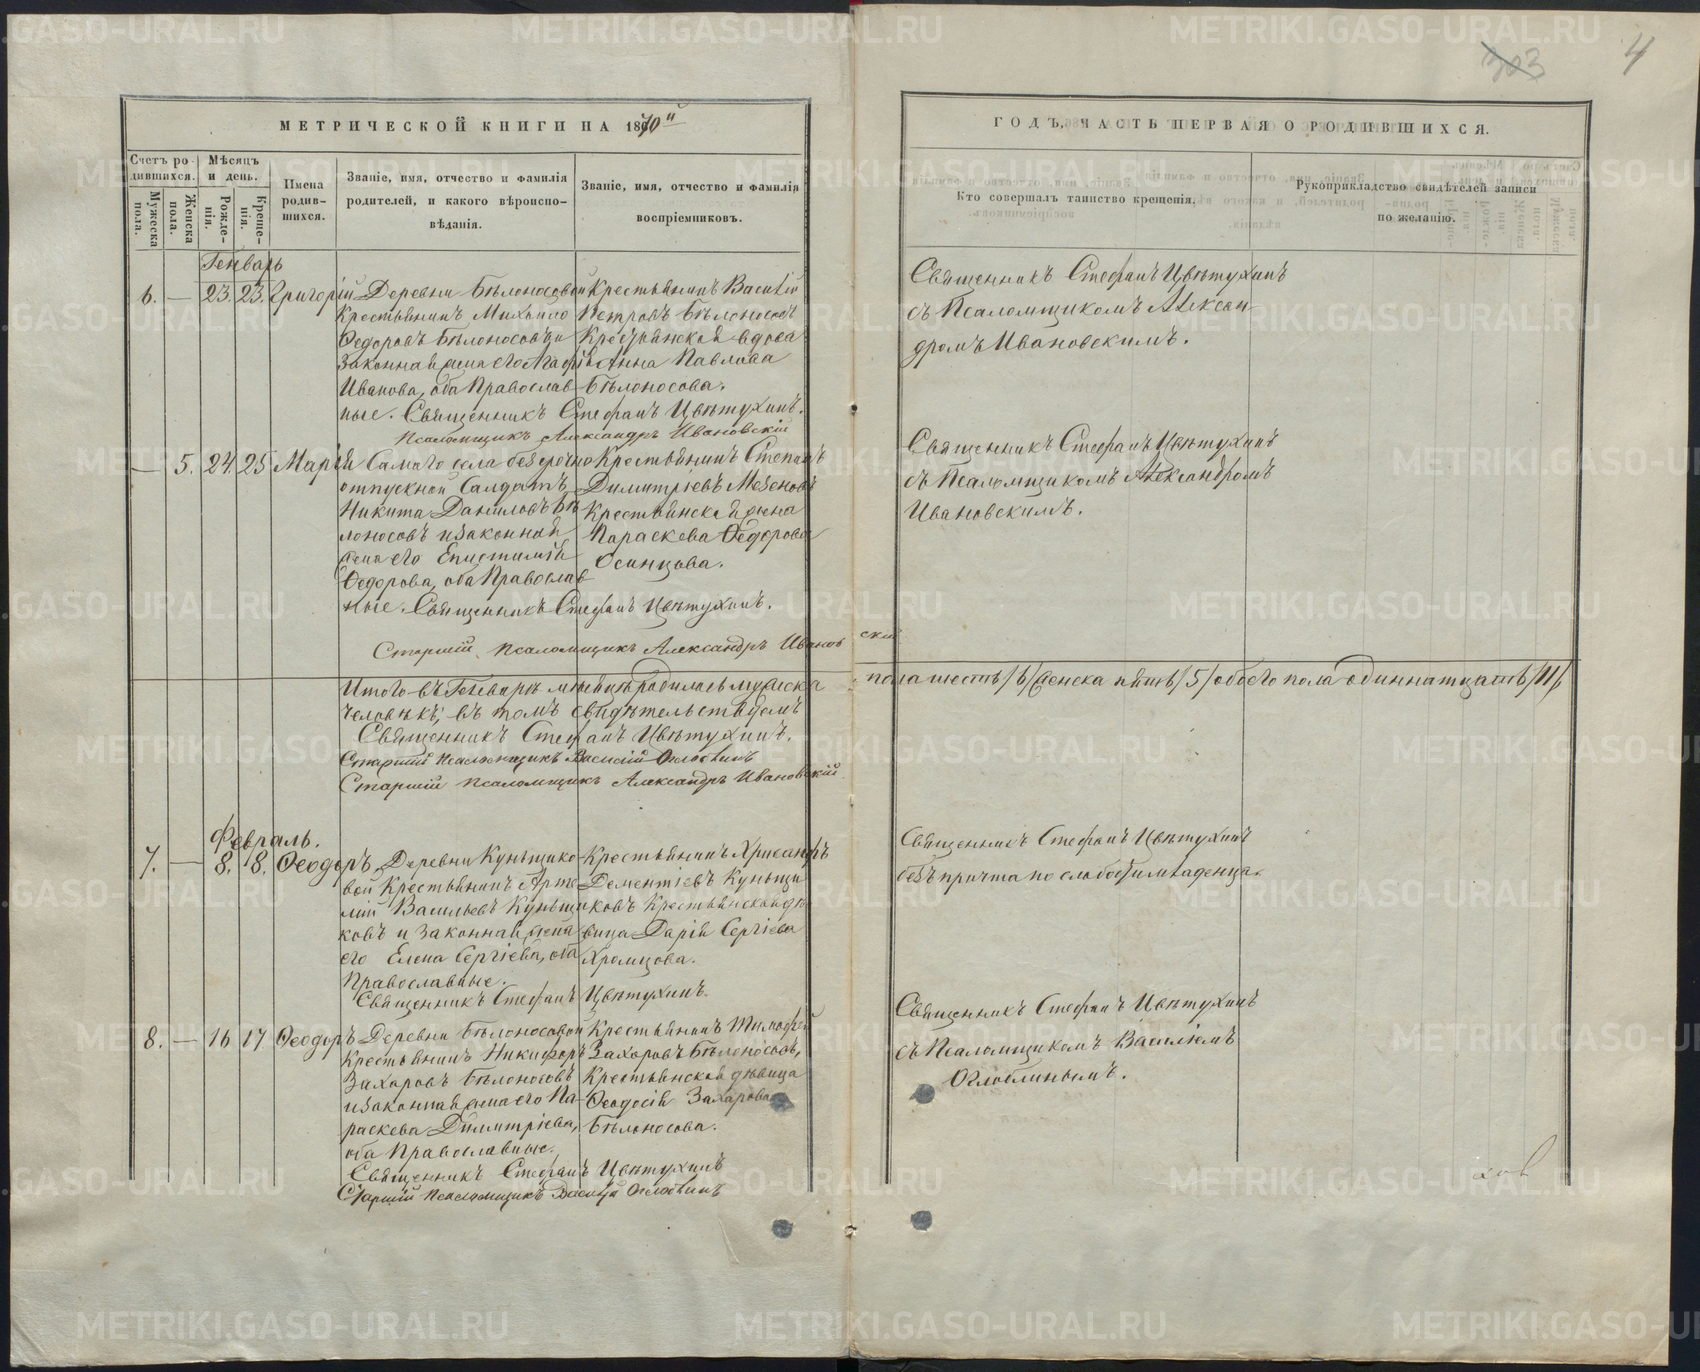 303
4
МЕТРИЧЕСКОЙ КНИГИ НА 1870й
Счетъ ро-
дившихся.
Мужеска
пола.
Женска
пола.
Мѣсяцъ
и день.
Рожде-
нія.
Креще-
нія.
Имена
родив-
шихся.
Званіе, имя, отчество и фамилія
родителей, и какого вѣроиспо-
вѣданія.
Званіе, имя, отчество и фамилія
воспріемниковъ.
Генварь
6. — 23. 23. Григорій
Деревни Бѣлоносовой
Крестьянинъ Михаило
Ѳедоровъ Бѣлоносовъ и
законная жена его Агафія
Иванова, оба Православ
ные. Священникъ Стефанъ Цвѣтухинъ.
Псаломщикъ Александръ Ивановскій
Крестьянинъ Василій
Петровъ Бѣлоносовъ
Крестьянская вдова
Анна Павлова
Бѣлоносова.
— 5. 24. 25 Марія
Самаго села безсрочно
отпускной Салдатъ
Никита Даниловъ Бѣ
лоносовъ и законная
жена его Епистимія
Ѳедорова, оба Православ
ные. Священникъ Стефанъ Цвѣтухинъ.
Старшій Псаломщикъ Александръ Ивановскій
Крестьянинъ Степанъ
Димитріевъ Мезеновъ
Крестьянская жена
Параскева Ѳедорова
Осинцова.
Итого въ Генварѣ мѣсяцѣ родилось мужеска
человѣкъ; въ томъ свидѣтельствуемъ
Священникъ Стефанъ Цвѣтухинъ.
Старшій Псаломщикъ Василій Оглоблинъ
Старшій Псаломщикъ Александръ Ивановскій
Февраль.
7. — 8. 8. Ѳеодоръ
Деревни Куньщико
вой Крестьянинъ Арте
мій Васильевъ Куньщи
ковъ и законная жена
его Елена Сергіева, оба
Православные.
Священникъ Стефанъ Цвѣтухинъ.
Крестьянинъ Хрисанфъ
Дементіевъ Куньщи
ковъ Крестьянская дѣ
вица Дарія Сергіева
Хромцова.
8. — 16 17 Ѳеодоръ
Деревни Бѣлоносовой
Крестьянинъ Никифоръ
Захаровъ Бѣлоносовъ
и законная жена его Па
раскева Димитріева,
оба Православные.
Священникъ Стефанъ Цвѣтухинъ
Старшій Псаломщикъ Василій Оглоблинъ
Крестьянинъ Тимофей
Захаровъ Бѣлоносовъ,
Крестьянская дѣвица
Ѳеодосія Захарова
Бѣлоносова.
ГОДЪ, ЧАСТЬ ПЕРВАЯ О РОДИВШИХСЯ.
Кто совершалъ таинство крещенія.
Рукоприкладство свидѣтелей записи
по желанію.
Священникъ Стефанъ Цвѣтухинъ
съ Псаломщикомъ Алексан
дромъ Ивановскимъ.
Священникъ Стефанъ Цвѣтухинъ
съ Псаломщикомъ Александромъ
Ивановскимъ.
пола шесть /6/ женска пять /5/ обоего пола одиннатцать /11/
Священникъ Стефанъ Цвѣтухинъ
безъ причта по слабости младенца.
Священникъ Стефанъ Цвѣтухинъ
съ Псаломщикомъ Василіемъ
Оглоблинымъ.
METRIKI.GASO-URAL.RU